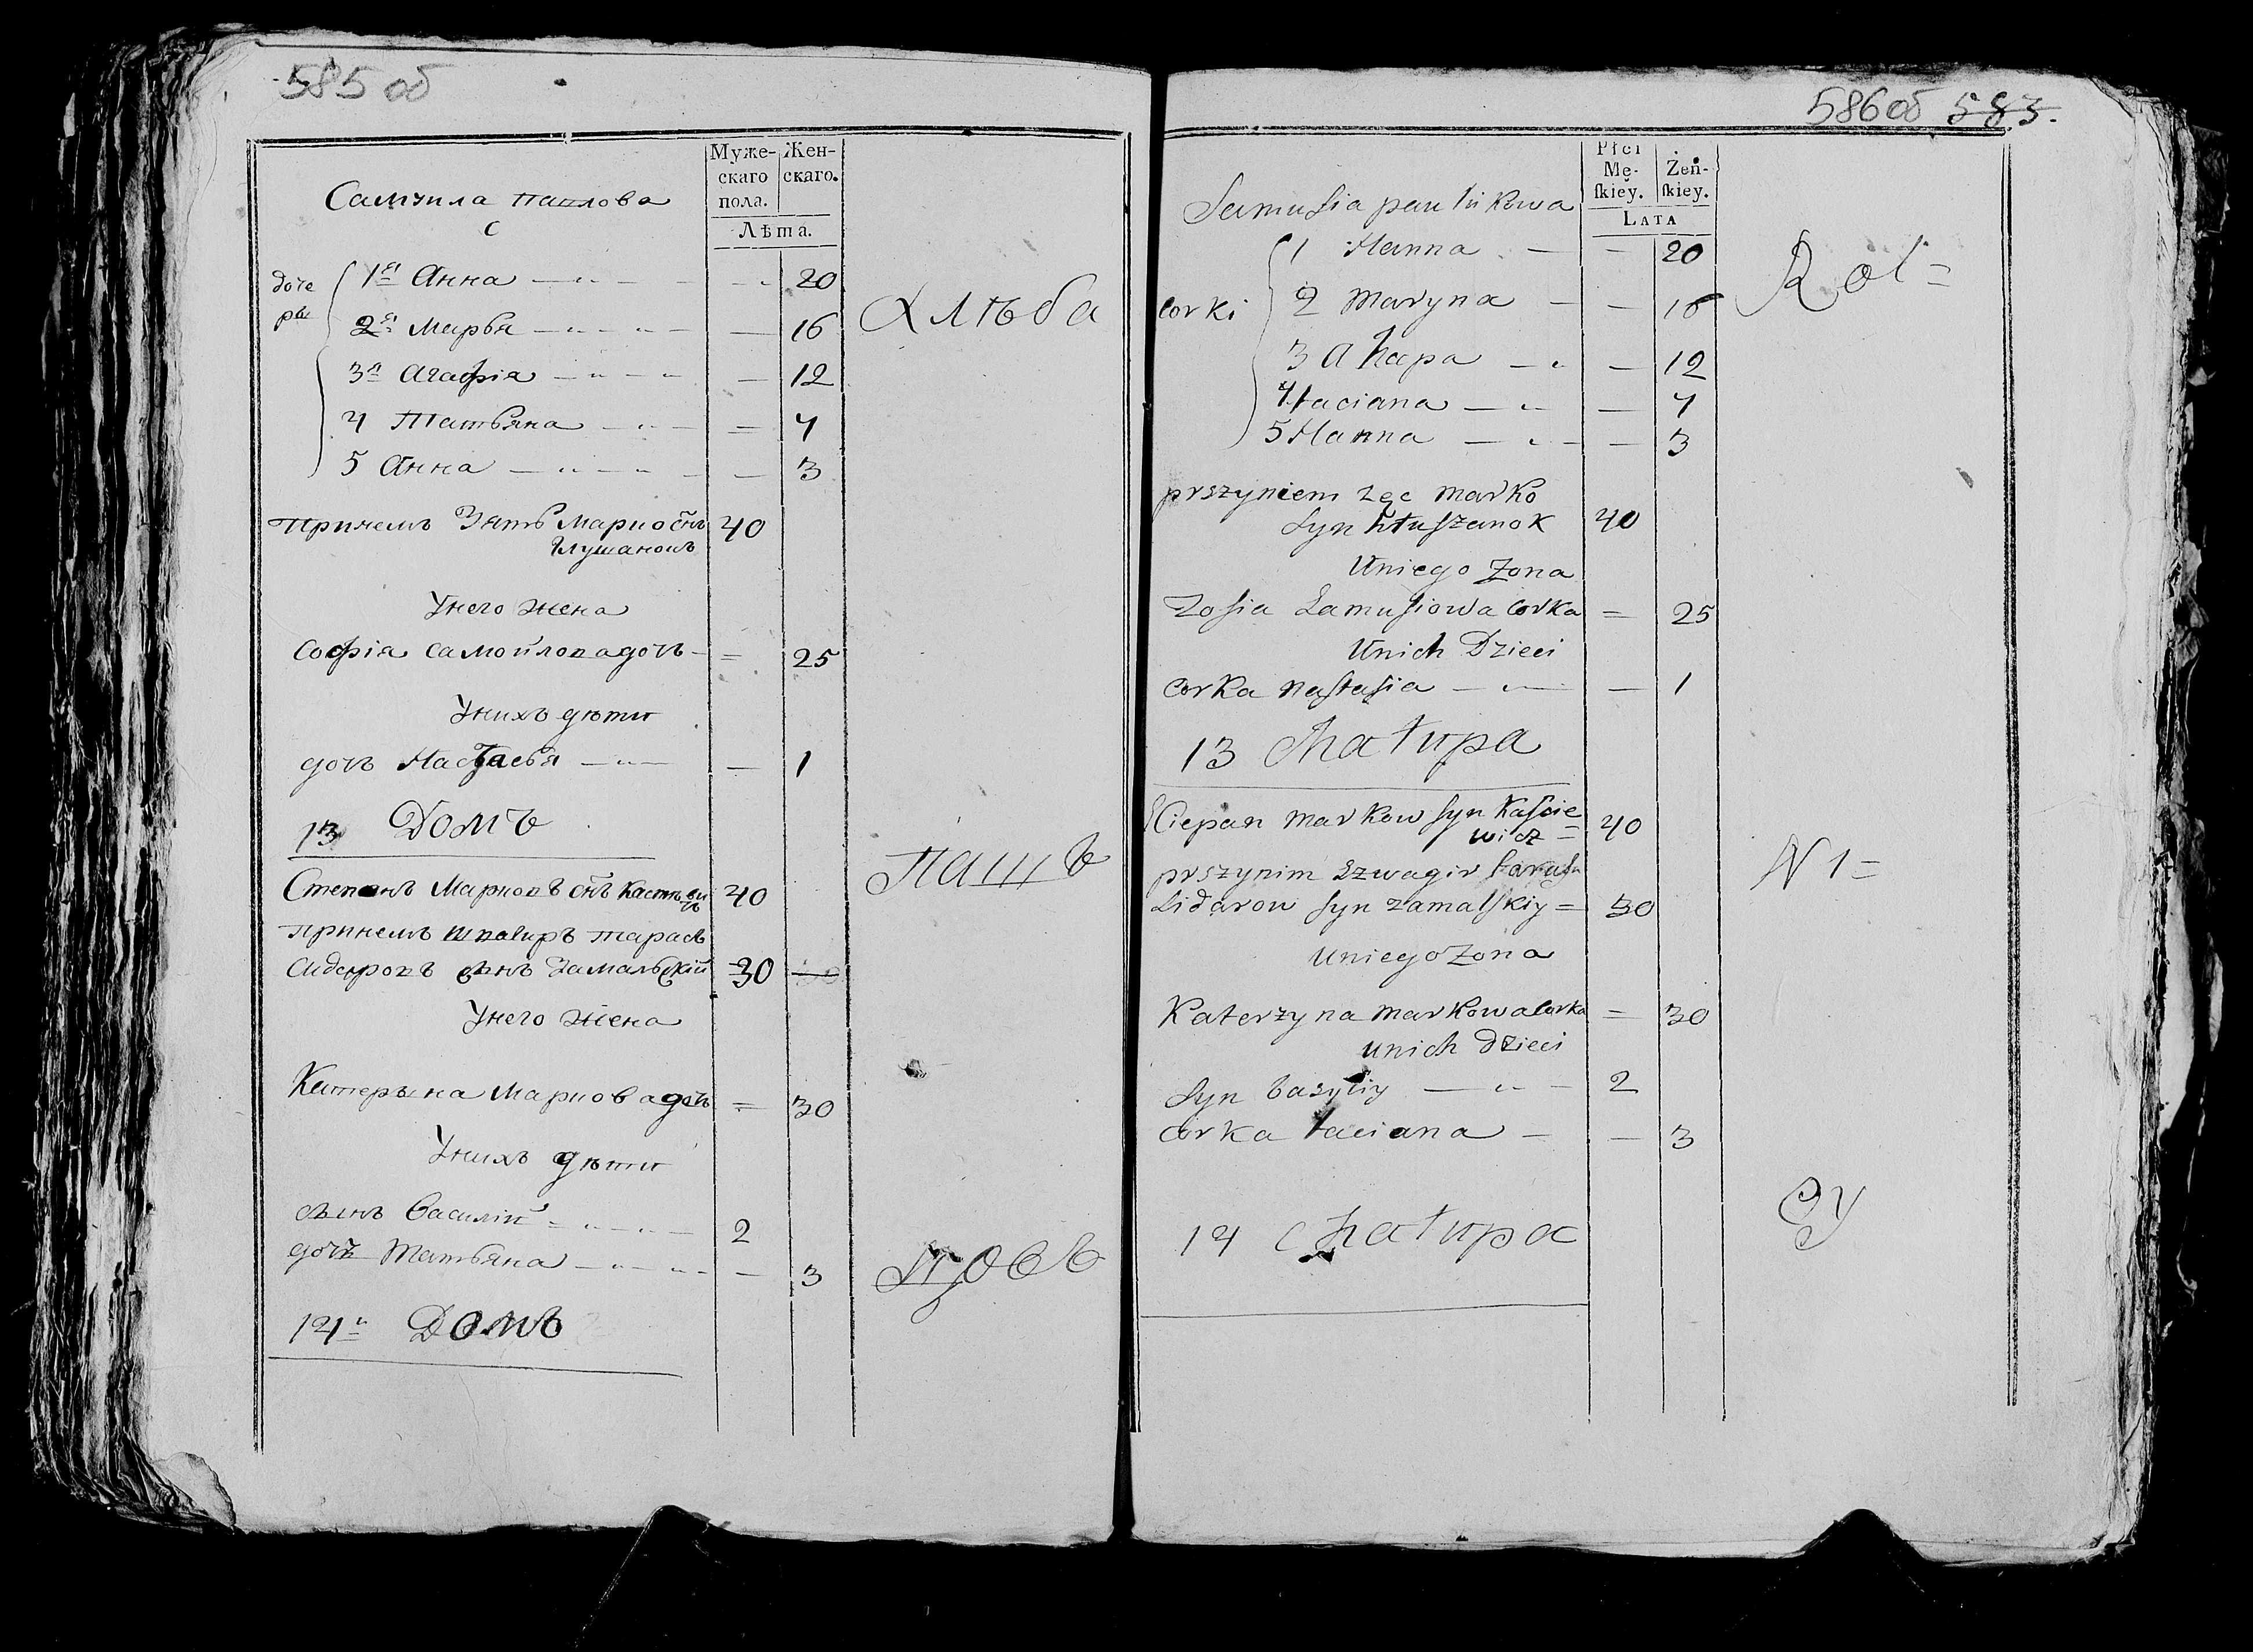 585 об
Муже-
скаго
пола.
Жен-
скаго.
Лѣта.
Самуила Павлова
с
доче
ры
1я Анна 20
2я Марья 16
3я Агафія 12
4 Татьяна 7
5 Анна 3
Хлѣба
Принемъ Зять Марко снъ 40
Глушанокъ
Унего жена
Софія Самойлова дочь 25
Унихъ дѣти
дочь Настасья 1
13 Домъ
Степанъ Марковъ снъ 40
Принемъ швагиръ Тарасъ
Сидоровъ сынъ Замальскій 30
Унего жена
Катерына Маркова дочь 30
Унихъ дѣти
сынъ Василій 2
дочь Татьяна 3
14й Домъ
586об 583.
Płci
Mę-
ſkiey.
Żeń-
ſkiey.
Lata
Samusia
corki
1 Hanna 20
2 Maryna 16
3 Ahapa 12
4 taciana 7
5 Hanna 3
Rol=
prszyniem zęc Marko
syn hłuszanok 40
Uniego Zona
Zosia Samusiowa corka = 25
Unich Dzieci
Corka nastasia 1
13 Chałupa
Sciepan Markow syn Kascie
wicz = 40
prszynim szwagir
Sidarow syn zamalskiy = 30
N 1=
Uniego Zona
Katerzyna Markowa Corka = 30
unich dzieci
Syn basyliy 2
Corka taciana 3
14 Chałupa